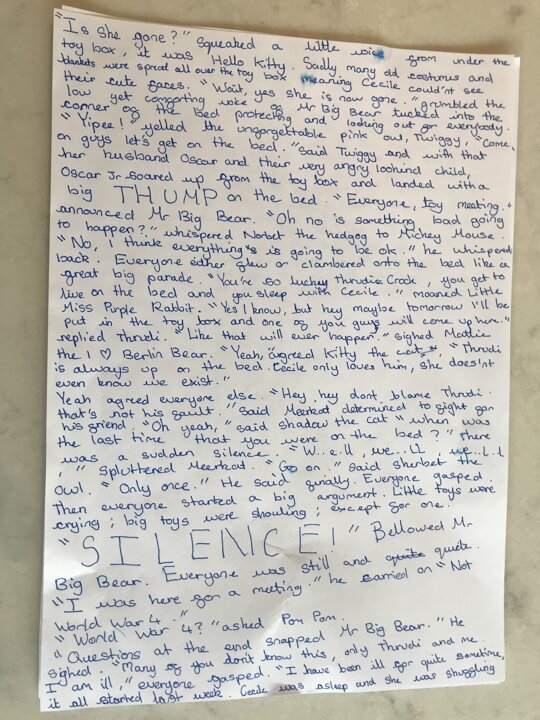 "Is she gone?" Squeaked a little voice from under the
toy box, it was Hello Kitty. Sadly many old costumes and
blankets were spread all over the toy box meaning Cecile could'nt see
their cute faces. "Wait, yes she is now gone." grumbled the
low yet comforting voice of Mr Big Bear tucked into the
corner of the bed protecting and looking out for everybody.
"Yipee!" yelled the unforgettable pink owl, Twiggy, "Come
on guys let's get on the bed." Said Twiggy and with that
her husband Oscar and their very angry loohind child,
Oscar Jr soared up from the toy box and landed with a
big THUMP on the bed. "Everyone, toy meeting."
announced Mr Big Bear. "Oh no is something bad going
to happen?" whispered Norbet the hedgog to Mickey Mouse.
"No, I think everything's is going to be ok." he whisperd
back. Everyone either flew or clambered onto the bed like a
great big parade. "You're so lucky Thrudi Crook, you get to
live on the bed and you sleep with Cecile." moaned Little
Miss Purple Rabbit. "Yes I know, but hey maybe tomorrow I'll be
put in the toy box and one of you guys will come up here."
replied Thrudi. "Like that will ever happen." sighed Mattie
the I ♡ Berlin Bear. "Yeah, agreed Kitty the cat". "Thrudi
is always up on the bed. Cecile only loves him, she does'nt
even know we exist."
Yeah agreed everyone else. "Hey, hey dont blame Thrudi
that's not his fault." Said Meerkat determined to fight for
his friend. "Oh yeah," said Shadow the cat "when was
the last time that you were on the bed?" There
was a sudden silence. "W..e.ll, we...ll, we...l.l
," Spluttered Meerkat. "Go on." said Sherbet the
Owl. "Only once." He said finally. Everyone gasped.
Then everyone started a big argument. Little toys were
crying; big toys were shouting; except for one.
"SILENCE!" Bellowed Mr
Big Bear. Everyone was still and quite quite.
"I was here for a meting." he carried on "Not
World War 4."
"World War 4?" asked Pom Pom.
"Questions at the end snapped Mr Big Bear." He
sighed. "Many of you don't know this, only Thrudi and me.
I am ill," everyone gasped. "I have been ill for quite sometime,
it all started last week. Cecile was asleep and she was snuggling